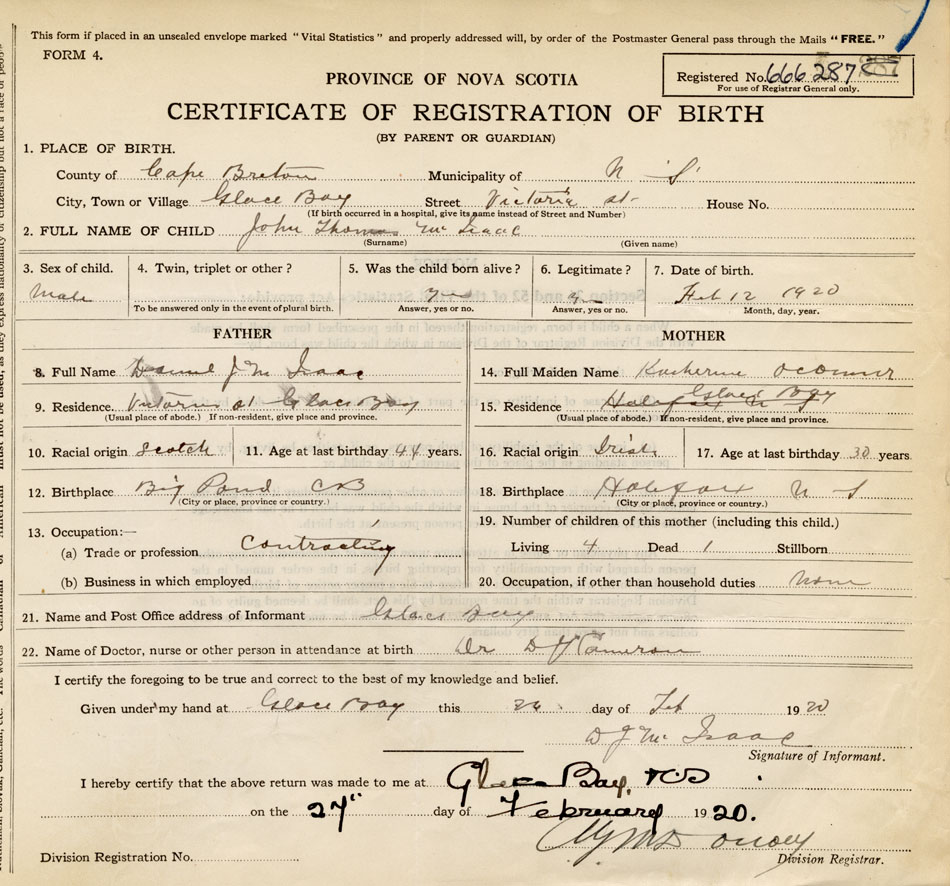 This form if placed in an unsealed envelope marked "Vital Statistics" and properly addressed will, by order of the Postmaster General pass through the Mails "FREE."
FORM 4.
PROVINCE OF NOVA SCOTIA
Registered No. 666 2878
For use of Registrar General only.
CERTIFICATE OF REGISTRATION OF BIRTH
(BY PARENT OR GUARDIAN)
1. PLACE OF BIRTH.
County of Cape Breton Municipality of N S
City, Town or Village Glace Bay Street Victoria st. House No.
(If birth occurred in a hospital, give its name instead of Street and Number)
2. FULL NAME OF CHILD John Thomas McIsaac
(Surname) (Given name)
3. Sex of child. 4. Twin, triplet or other? 5. Was the child born alive? 6. Legitimate? 7. Date of birth.
Male yes Feb 12 1920
To be answered only in the event of plural birth. Answer, yes or no. Answer, yes or no. Month, day, year.
FATHER MOTHER
8. Full Name J McIsaac 14. Full Maiden Name Katherine OConnor
9. Residence. Victoria st Glace Bay 15. Residence Halifax N S Glace Bay
(Usual place of abode.) If non-resident, give place and province. (Usual place of abode.) If non-resident, give place and province.
10. Racial origin Scotch 11. Age at last birthday 44 years. 16. Racial origin Irish 17. Age at last birthday 30 years
12. Birthplace Big Pond CB 18. Birthplace Halifax N S
(City or place, province or country.) (City or place, province or country.)
13. Occupation:— 19. Number of children of this mother (including this child.)
(a) Trade or profession Contracting Living 4 Dead 1 Stillborn
(b) Business in which employed 20. Occupation, if other than household duties None
21. Name and Post Office address of Informant Glace Bay
22. Name of Doctor, nurse or other person in attendance at birth Dr D J Cameron
I certify the foregoing to be true and correct to the best of my knowledge and belief.
Given under my hand at Glace Bay this day of Feb 1920
D J McIsaac
Signature of Informant.
I hereby certify that the above return was made to me at Glace Bay,
on the 27" day of February 1920.
Division Registration No. Division Registrar.